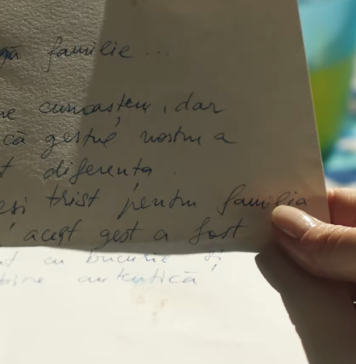 familie...
ne cunoaștem, dar
că gestul nostru a
t diferența.
și trist pentru familia
acest gest a fost
cu bucurie și
autentică